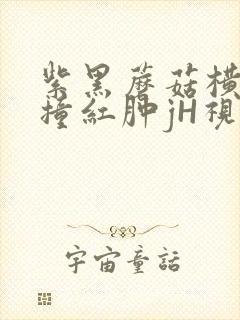 紫黑蘑菇横
撞紅肿jH視
宇宙童話